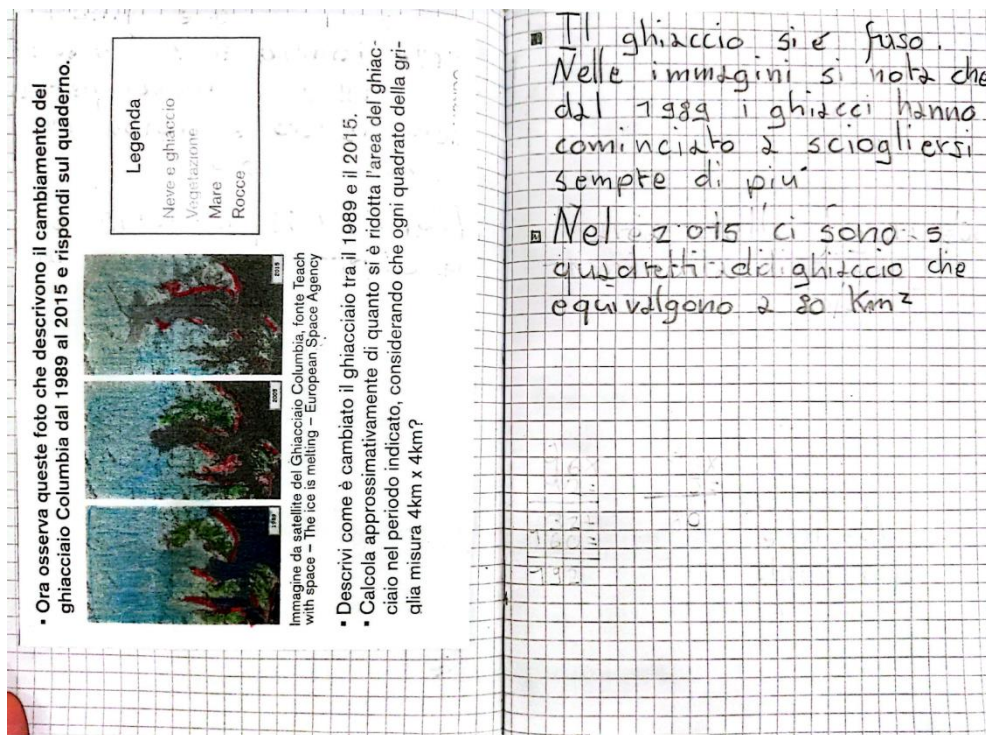 ▪ Ora osserva queste foto che descrivono il cambiamento del
ghiacciaio Columbia dal 1989 al 2015 e rispondi sul quaderno.
Legenda
Neve e ghiaccio
Vegetazione
Mare
Rocce
1989
2009
2015
Immagine da satellite del Ghiacciaio Columbia, fonte Teach
with space – The ice is melting – European Space Agency
▪ Descrivi come è cambiato il ghiacciaio tra il 1989 e il 2015.
▪ Calcola approssimativamente di quanto si è ridotta l'area del ghiac-
ciaio nel periodo indicato, considerando che ogni quadrato della gri-
glia misura 4km x 4km?
Il ghiaccio si é fuso.
Nelle immagini si nota che
dal 1989 i ghiacci hanno
cominciato a sciogliersi
sempre di piu'
Nel 2015 ci sono 5
quadretti di ghiaccio che
equivalgono a 80 Km²